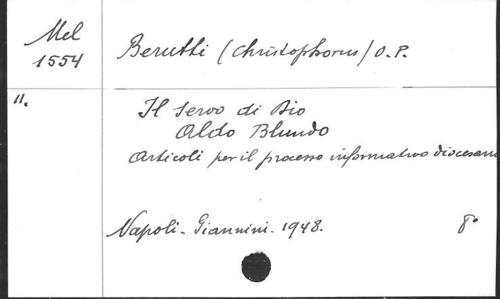 Mel
1554
Berutti (Christophorus) O.P.
11.
Il Servo di Dio
Aldo Blundo
Articoli per il processo informativo diocesano
Napoli - Giannini - 1948. 8°